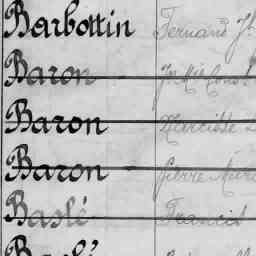 Barbottin Fernand J
Baron
Baron Narcisse
Baron Pierre
Baslé Francis